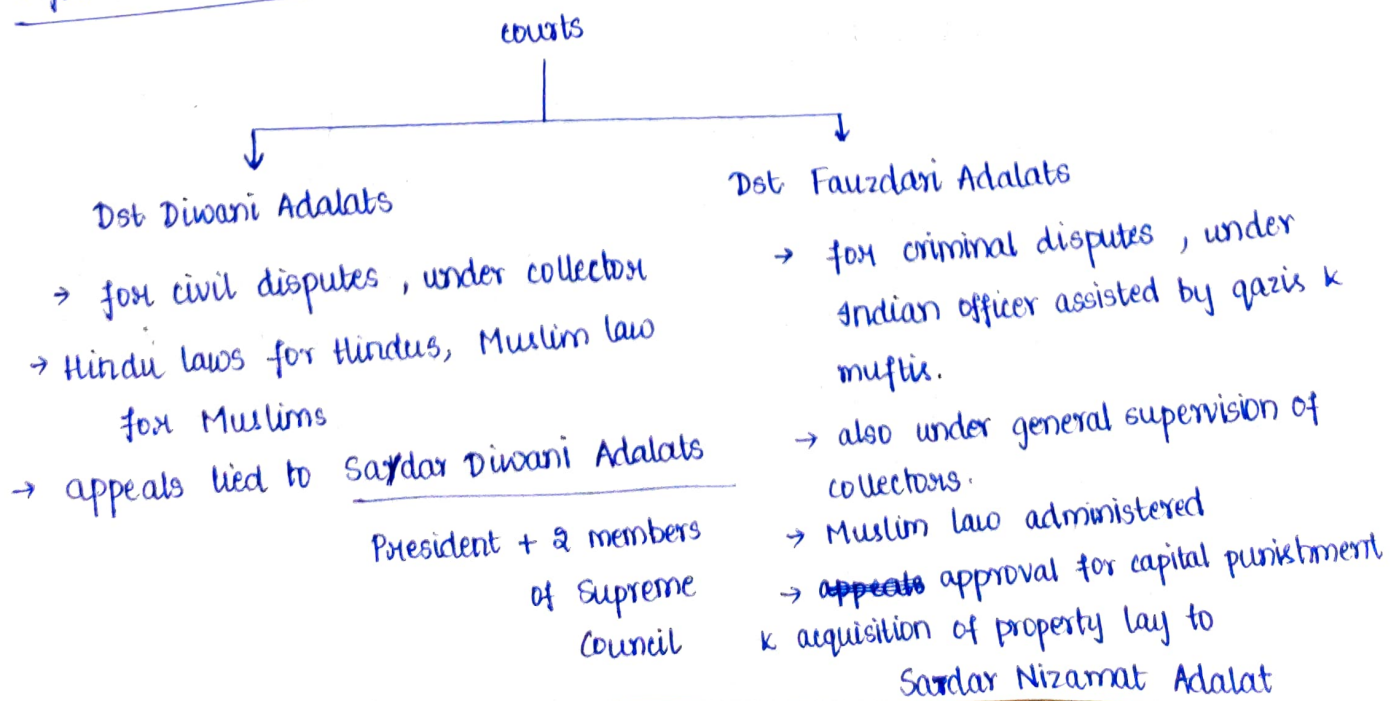 courts
Dst Diwani Adalats
→ for civil disputes , under collector
→ Hindu laws for Hindus, Muslim law
for Muslims
→ appeals lied to Sardar Diwani Adalats
President + 2 members
of Supreme
Council
Dst Fauzdari Adalats
→ for criminal disputes , under
Indian officer assisted by qazis &
muftis.
→ also under general supervision of
collectors.
→ Muslim law administered
→ appeals approval for capital punishment
& acquisition of property lay to
Sardar Nizamat Adalat